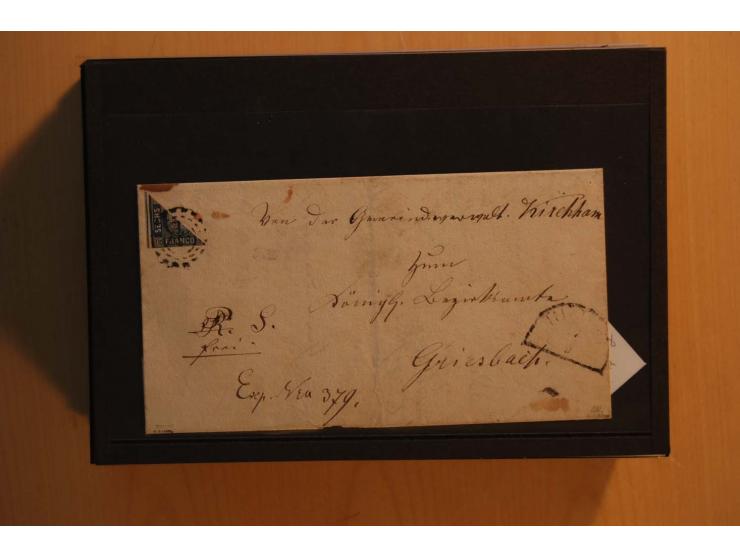 SECHS
FRANCO
Von der Gemeindeverwalt. Kirchham
Zum
Königl. Bezirksamte
R. S.
frei
Griesbach.
Exp. Nro 379.